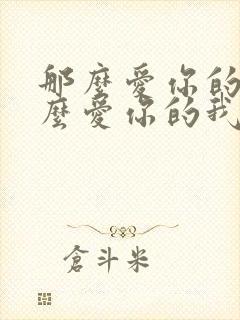 那麼愛你的
麼愛你的我
倉斗米